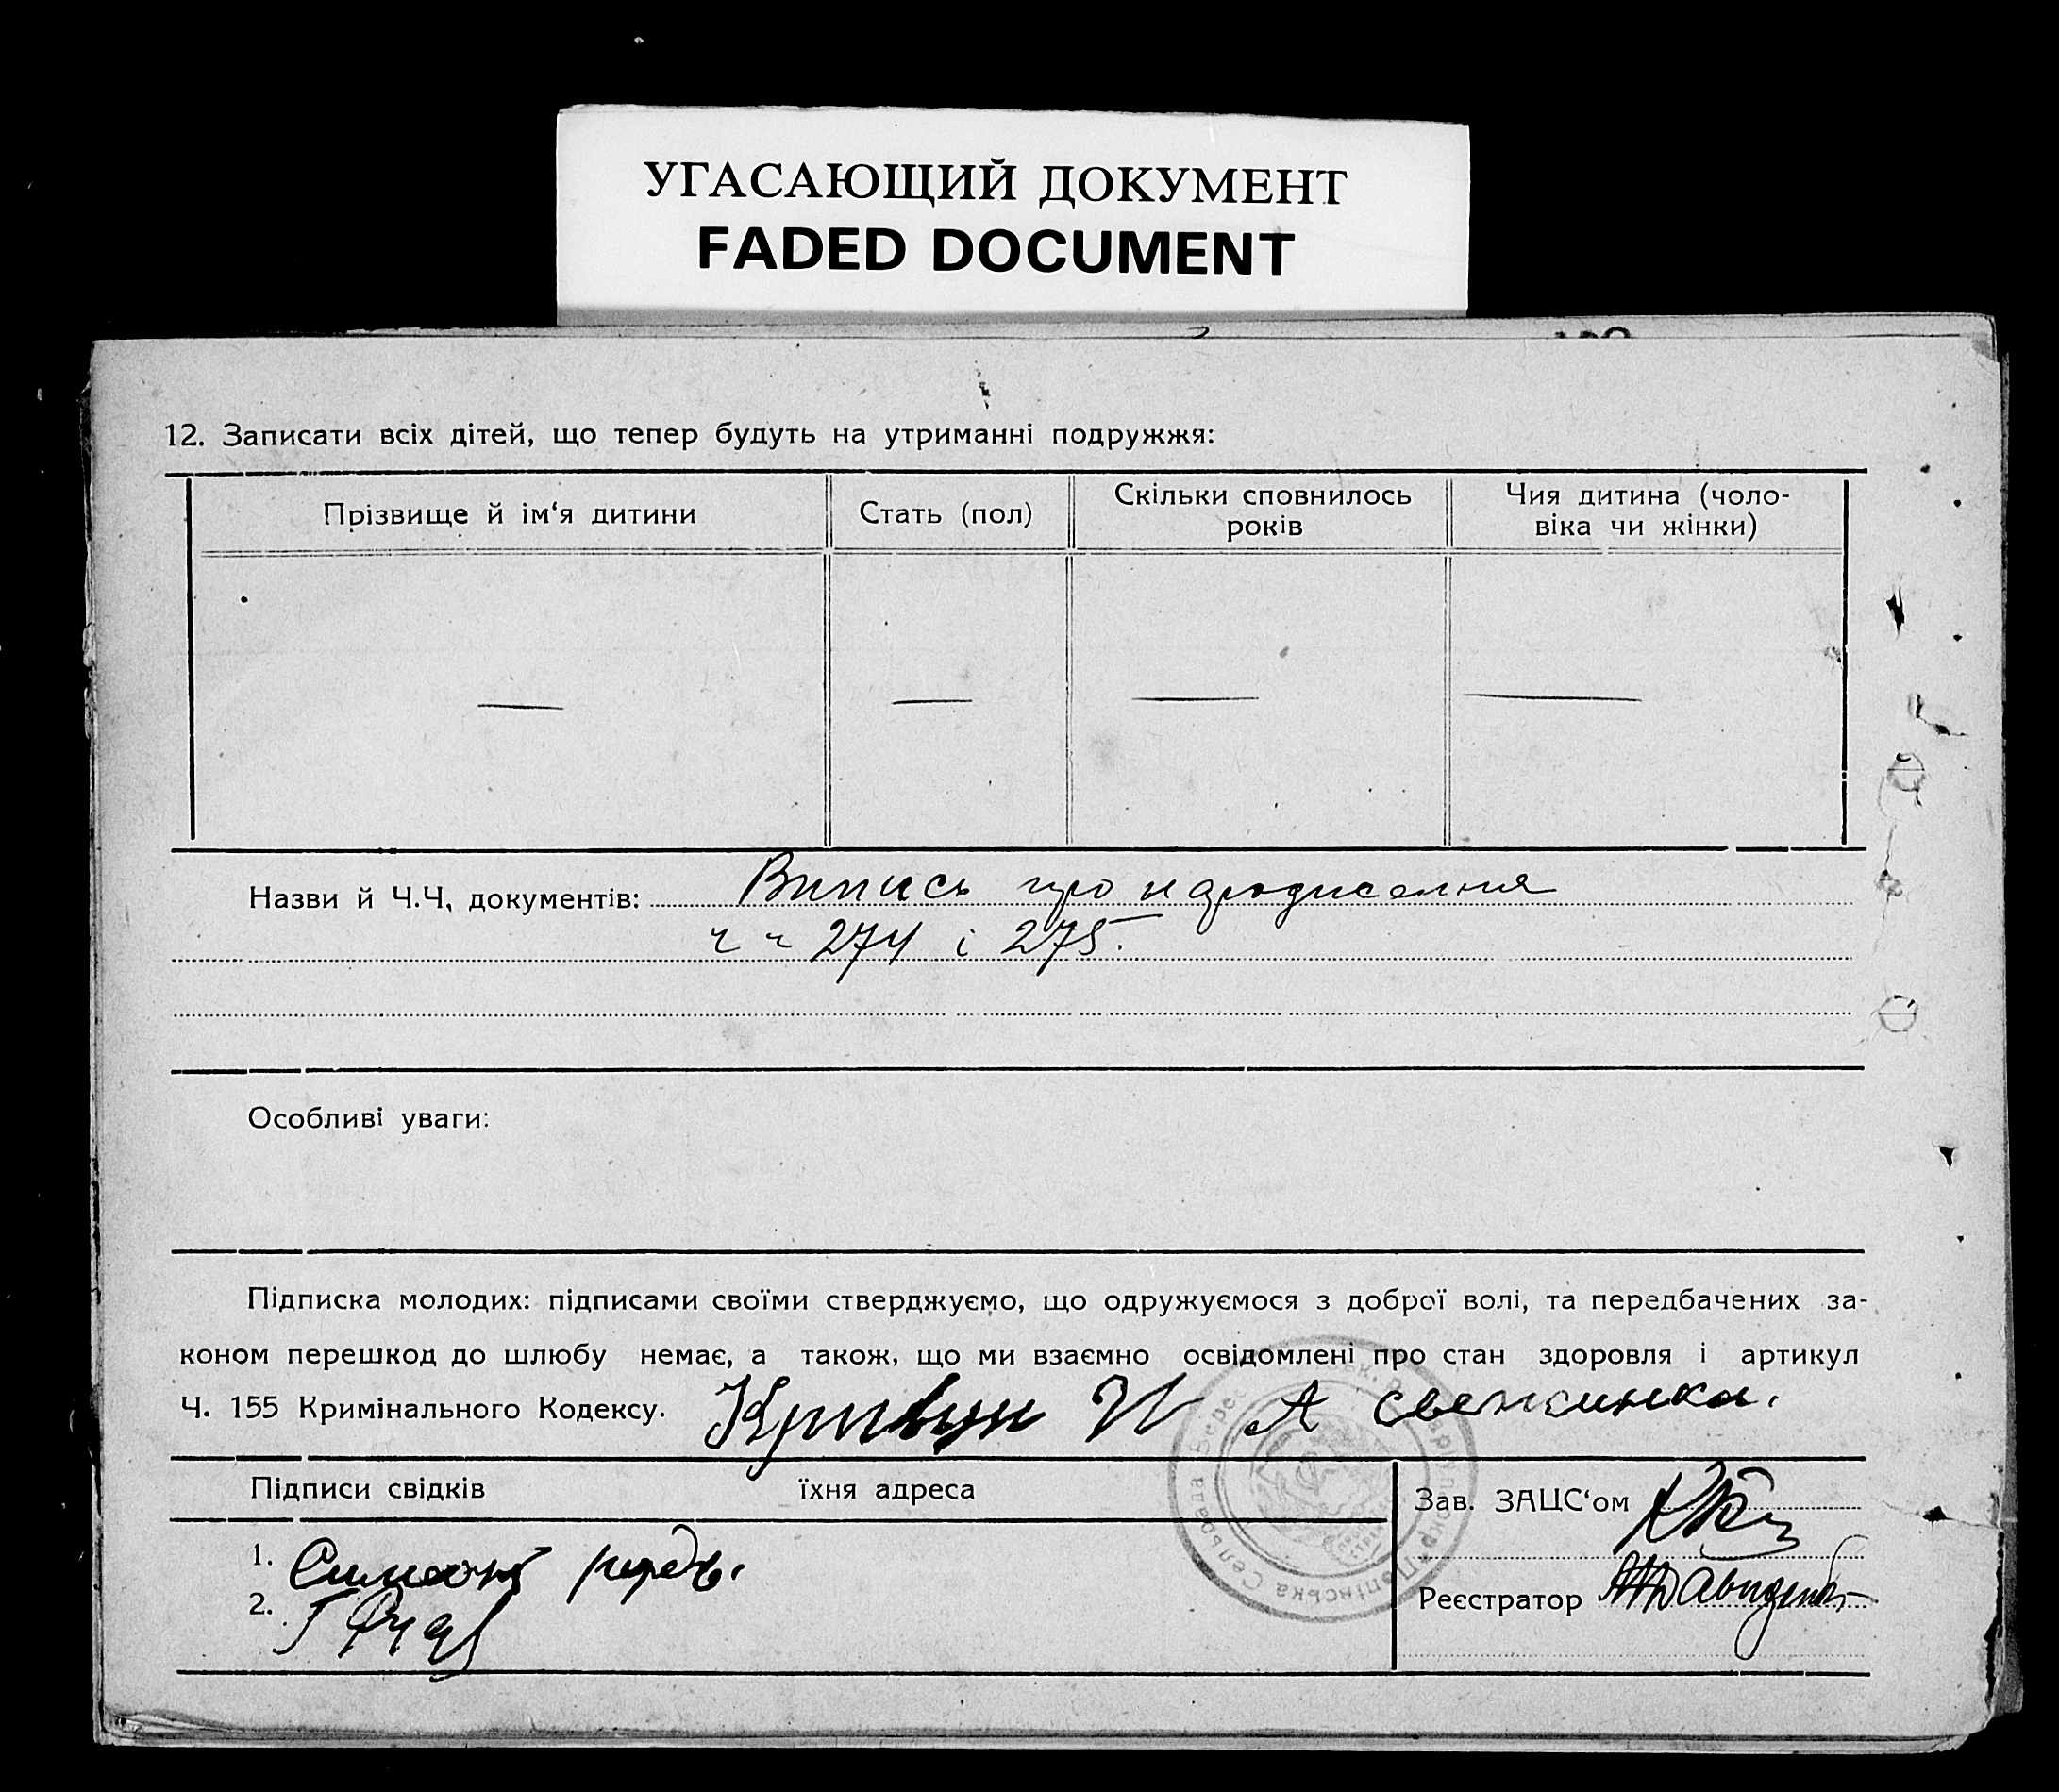 УГАСАЮЩИЙ ДОКУМЕНТ
FADED DOCUMENT
12. Записати всіх дітей, що тепер будуть на утриманні подружжя:
Прізвище й ім‘я дитини
Стать (пол)
Скільки сповнилось
років
Чия дитина (чоло-
віка чи жінки)
— — — —
Назви й Ч.Ч. документів: Випись про народження
ч ч 274 і 275.
Особливі уваги:
Підписка молодих: підписами своїми стверджуємо, що одружуємося з доброї волі, та передбачених за-
коном перешкод до шлюбу немає, а також, що ми взаємно освідомлені про стан здоровля і артикул
Ч. 155 Кримінального Кодексу. Кривун И А
Підписи свідків їхня адреса
Зав. ЗАЦС‘ом
1.
2.
Реєстратор